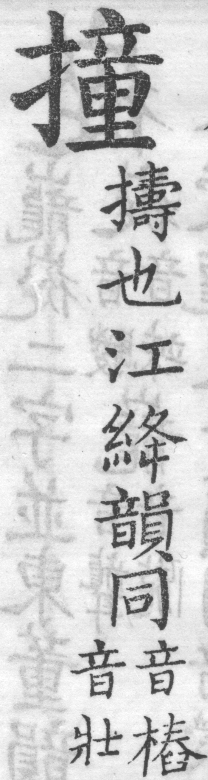 撞
擣也江絳韻同
音樁
音壯